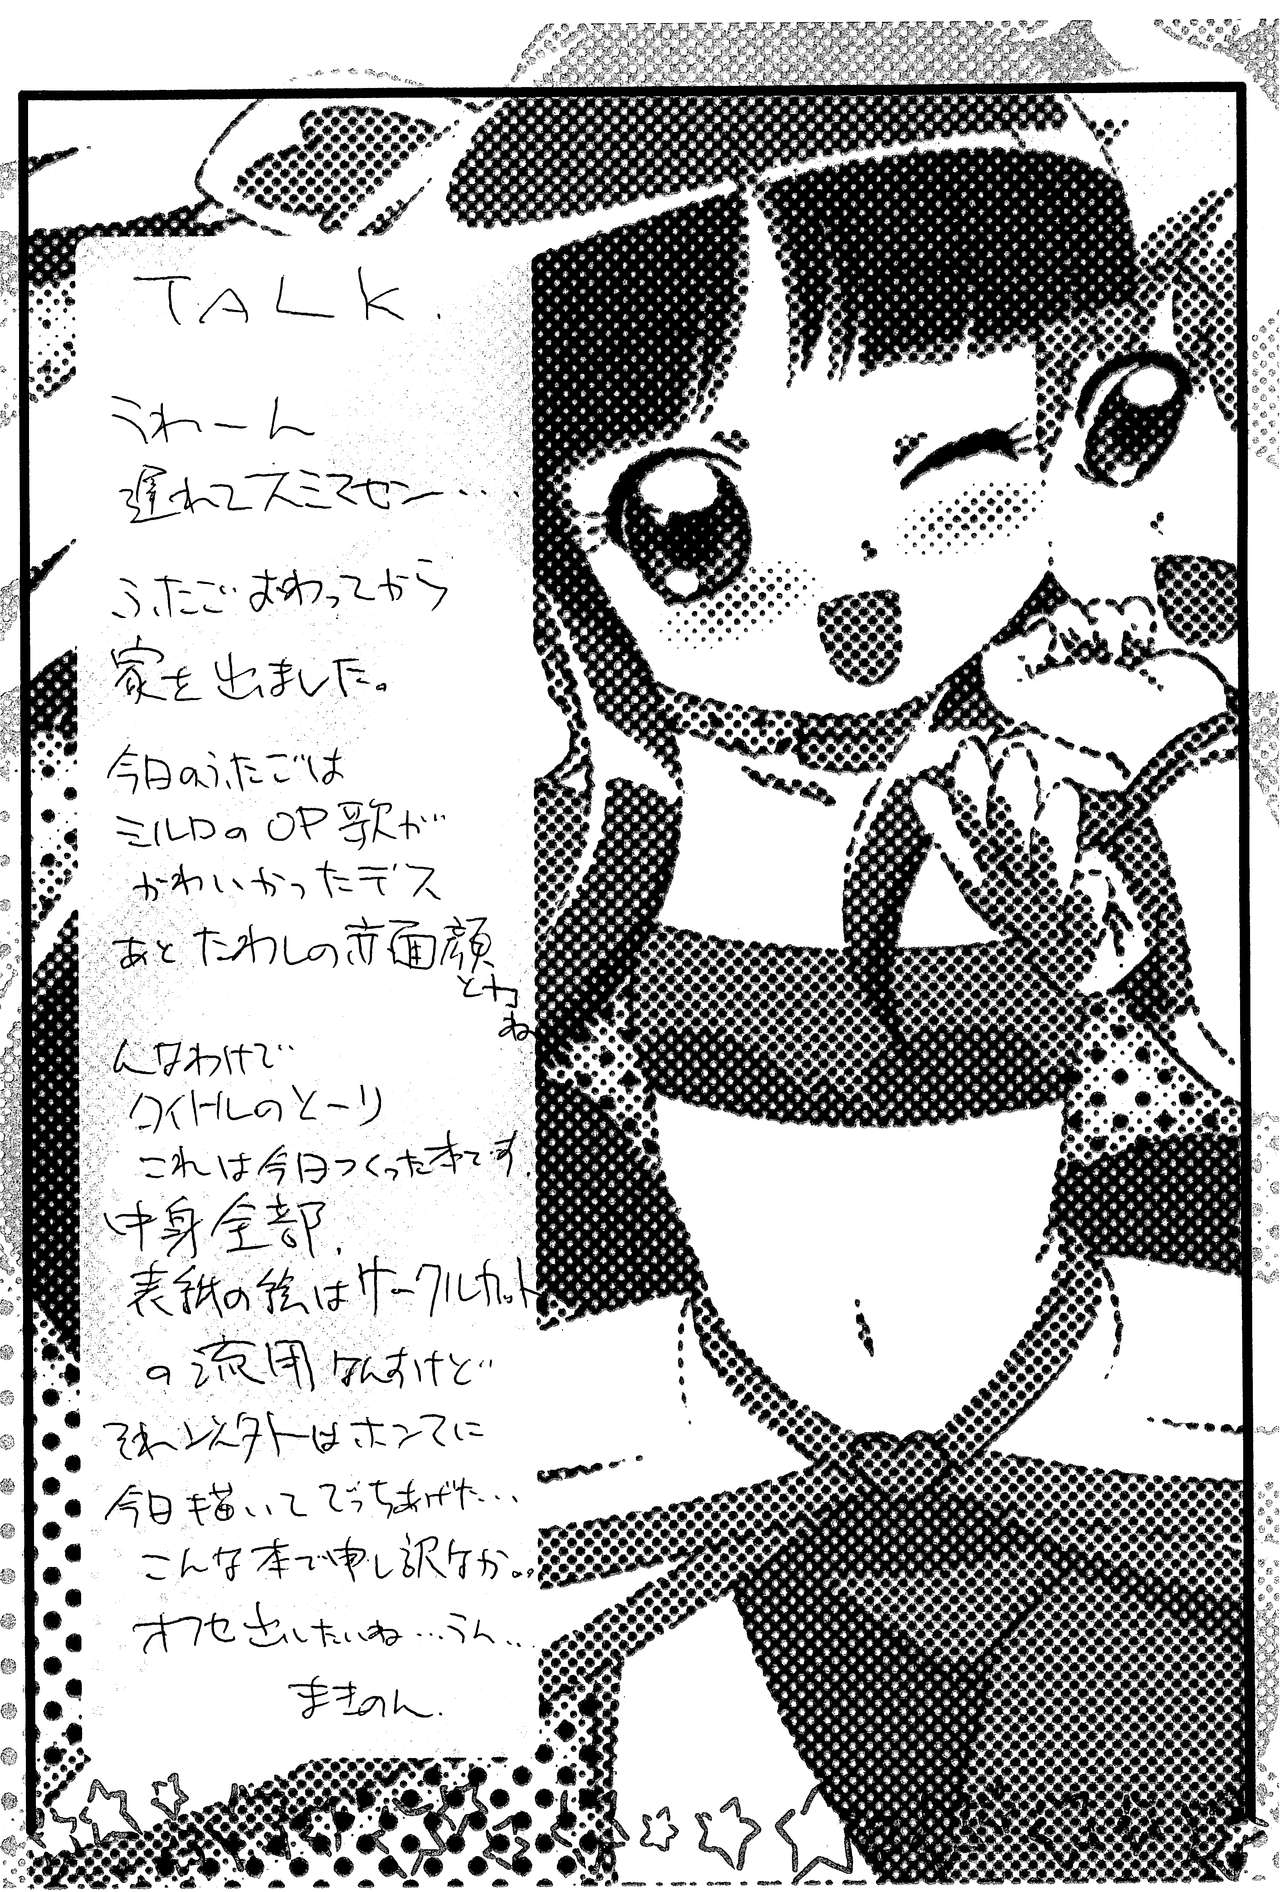 TALK.
うわーん
遅れてスミマセン・・・
ふたごおわってから
家を出ました。
今日のふたごは
ミルロのOP歌が
かわいかったデス
あとたわしの赤面顔
とかね
んなわけで
タイトルのとーり
これは今日つくった本です.
中身全部.
表紙の絵はサークルカット
の流用なんすけど
それ以外はホンマに
今日描いてでっちあげた...
こんな本で申し訳なか..
オフセ出したいね...うん..
まきのん.